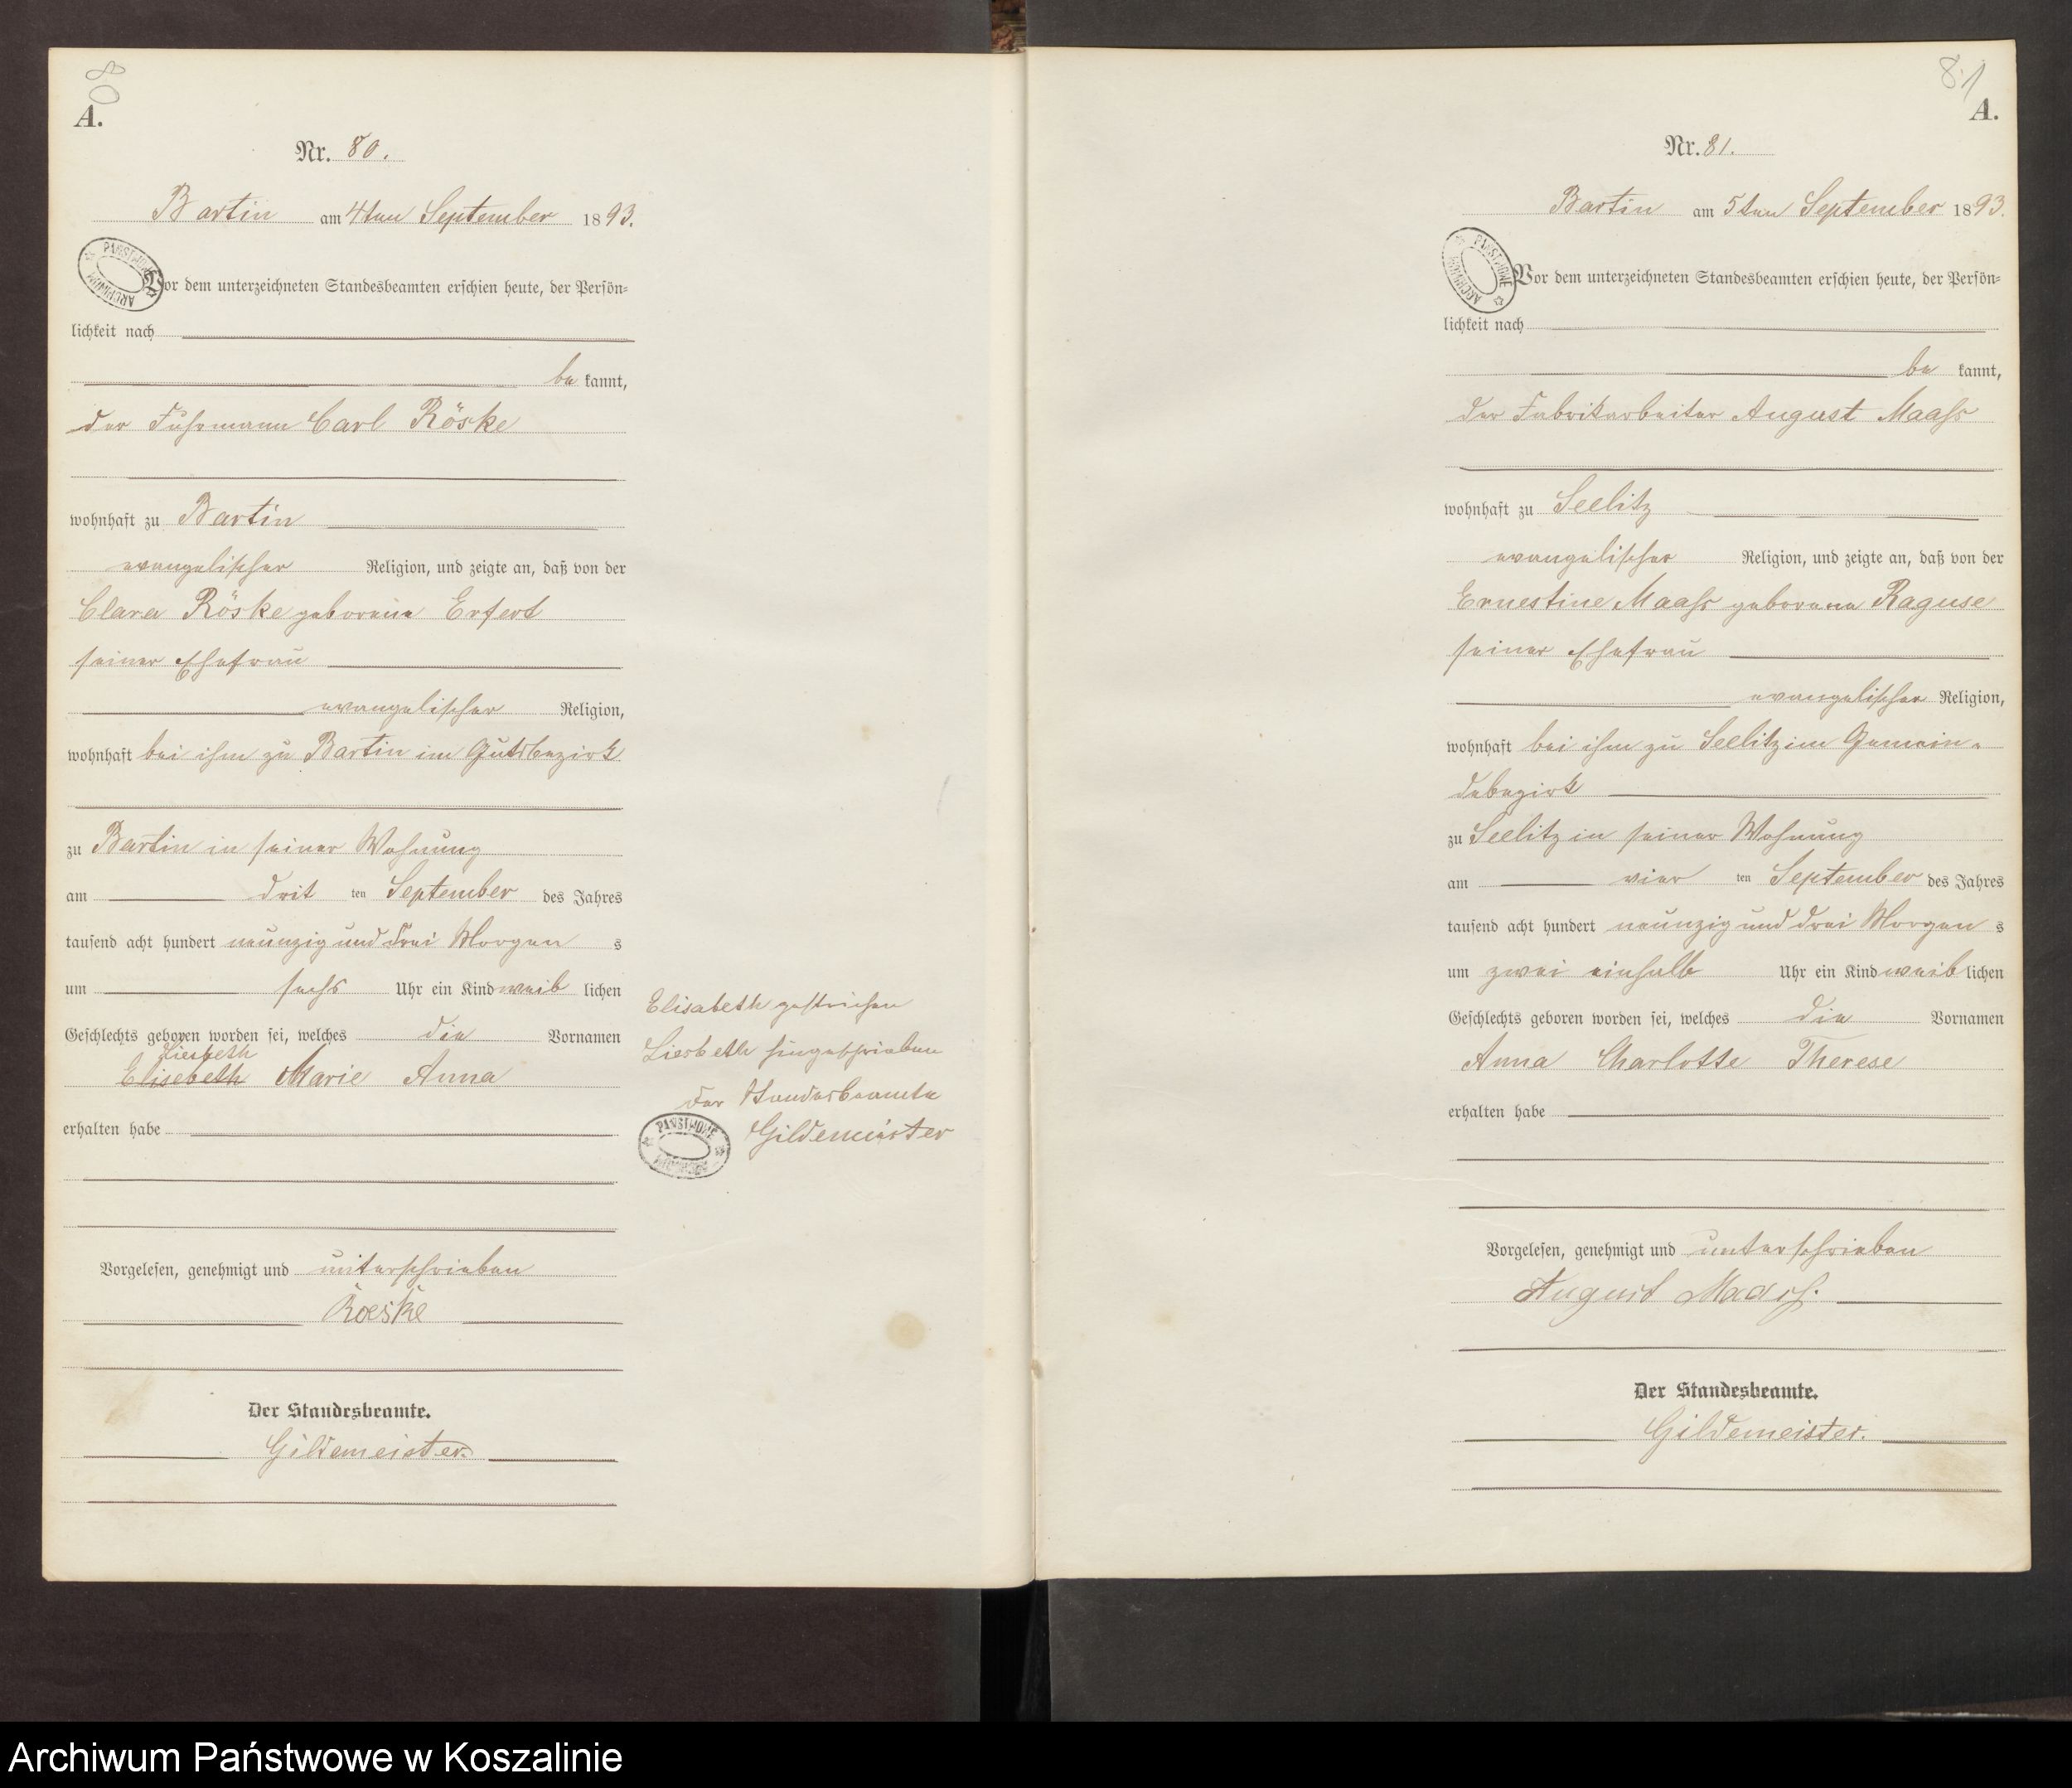 80
A.
Nr. 80.
Bartin am 4ten September 1893.
PAŃSTWOWE ARCHIWUM
Vor dem unterzeichneten Standesbeamten erschien heute, der Persön=
lichkeit nach
be kannt,
der Fuhrmann Carl Röske
wohnhaft zu Bartin
evangelischer Religion, und zeigte an, daß von der
Clara Röske geborene Erfert
seiner Ehefrau
evangelischer Religion,
wohnhaft bei ihm zu Bartin im Gutsbezirk
zu Bartin in seiner Wohnung
am drit ten September des Jahres
tausend acht hundert neunzig und drei Morgen s
um sechs Uhr ein Kind weib lichen
Geschlechts geboren worden sei, welches die Vornamen
Liesbeth
Elisebeth Marie Anna
erhalten habe
Vorgelesen, genehmigt und unterschrieben
Roeske
Der Standesbeamte.
Gildemeister.
Elisabeth gestrichen
Liesbeth hingeschrieben
Der Standesbeamte
Gildemeister
PAŃSTWOWE ARCHIWUM
81
A.
Nr. 81.
Bartin am 5ten September 1893.
PAŃSTWOWE ARCHIWUM
Vor dem unterzeichneten Standesbeamten erschien heute, der Persön=
lichkeit nach
be kannt,
der Fabrikarbeiter August Maaß
wohnhaft zu Seelitz
evangelischer Religion, und zeigte an, daß von der
Ernestine Maaß geborene Raguse
seiner Ehefrau
evangelischer Religion,
wohnhaft bei ihm zu Seelitz im Gemein=
debezirk
zu Seelitz in seiner Wohnung
am vier ten September des Jahres
tausend acht hundert neunzig und drei Morgen s
um zwei einhalb Uhr ein Kind weib lichen
Geschlechts geboren worden sei, welches die Vornamen
Anna Charlotte Therese
erhalten habe
Vorgelesen, genehmigt und unterschrieben
August Maaß.
Der Standesbeamte.
Gildemeister.
Archiwum Państwowe w Koszalinie